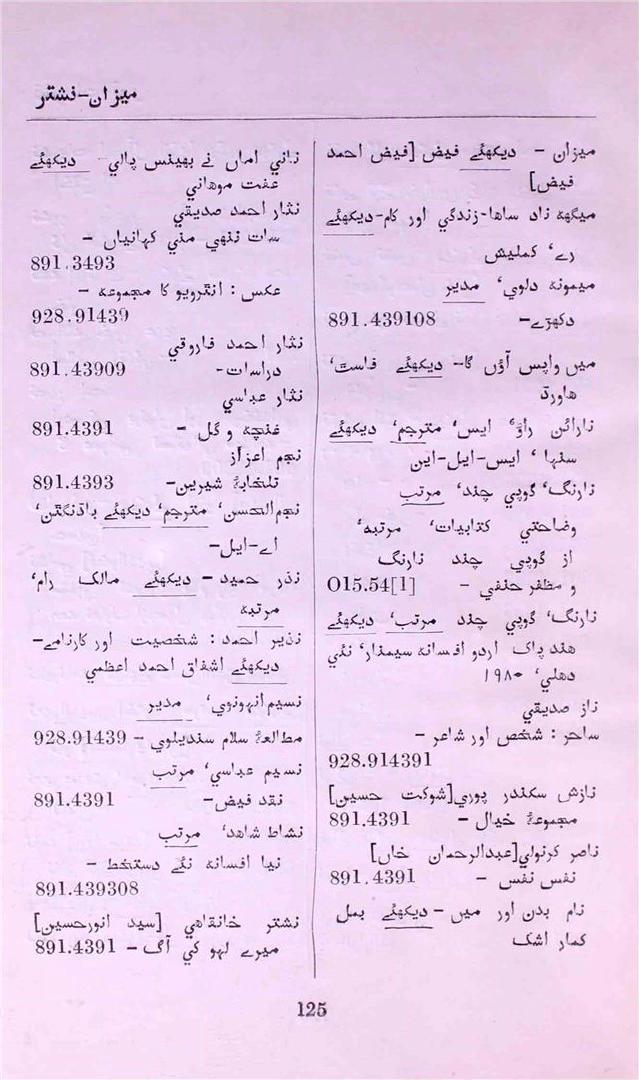 میزان-نشتر
میزان - دیکھئے فیض [فیض احمد
فیض]
میگھہ ناد ساھا-زندگي اور کام-دیکھئے
رے، کملیش
میمونہ دلوي، مدیر
دکھڑے- 891.439108
میں واپس آؤں گا- دیکھئے فاسٹ،
ھاورڈ
نارائن راؤ، ایس، مترجم، دیکھئے
سنہا، ایس-ایل-این
نارنگ، گوپي چند، مرتب
وضاحتي کتابیات، مرتبہ،
از گوپي چند نارنگ
و مظفر حنفي - O15.54[1]
نارنگ، گوپي چند مرتب، دیکھئے
ھند پاک اردو افسانہ سیمنار، نئي
دھلي، ۱۹۸۰
ناز صدیقي
ساحر: شخص اور شاعر -
928.914391
نازش سکندر پوري[شوکت حسین]
مجموعۂ خیال - 891.4391
ناصر کرنولي[عبدالرحمان خاں]
نفس نفس - 891.4391
نام بدن اور میں - دیکھئے بمل
کمار اشک
ناني اماں نے بھینس پالي- دیکھئے
عفت موھاني
نثار احمد صدیقي
سات ننھي مني کہانیاں -
891.3493
عکس: انٹرویو کا مجموعہ -
928.91439
نثار احمد فاروقي
دراسات- 891.43909
نثار عباسي
غنچہ و گل - 891.4391
نجم اعزاز
تلخابۂ شیریں- 891.4393
نجم الحسن، مترجم، دیکھئے باڈنگٹن،
اے-ایل-
نذر حمید - دیکھئے مالک رام،
مرتبہ
نذیر احمد: شخصیت اور کارنامے-
دیکھئے اشفاق احمد اعظمي
نسیم انہونوي، مدیر
مطالعۂ سلام سندیلوي - 928.91439
نسیم عباسي، مرتب
نقد فیض- 891.4391
نشاط شاھد، مرتب
نیا افسانہ نئے دستخط -
891.439308
نشتر خانقاھي [سید انورحسین]
میرے لہو کي آگ - 891.4391
125